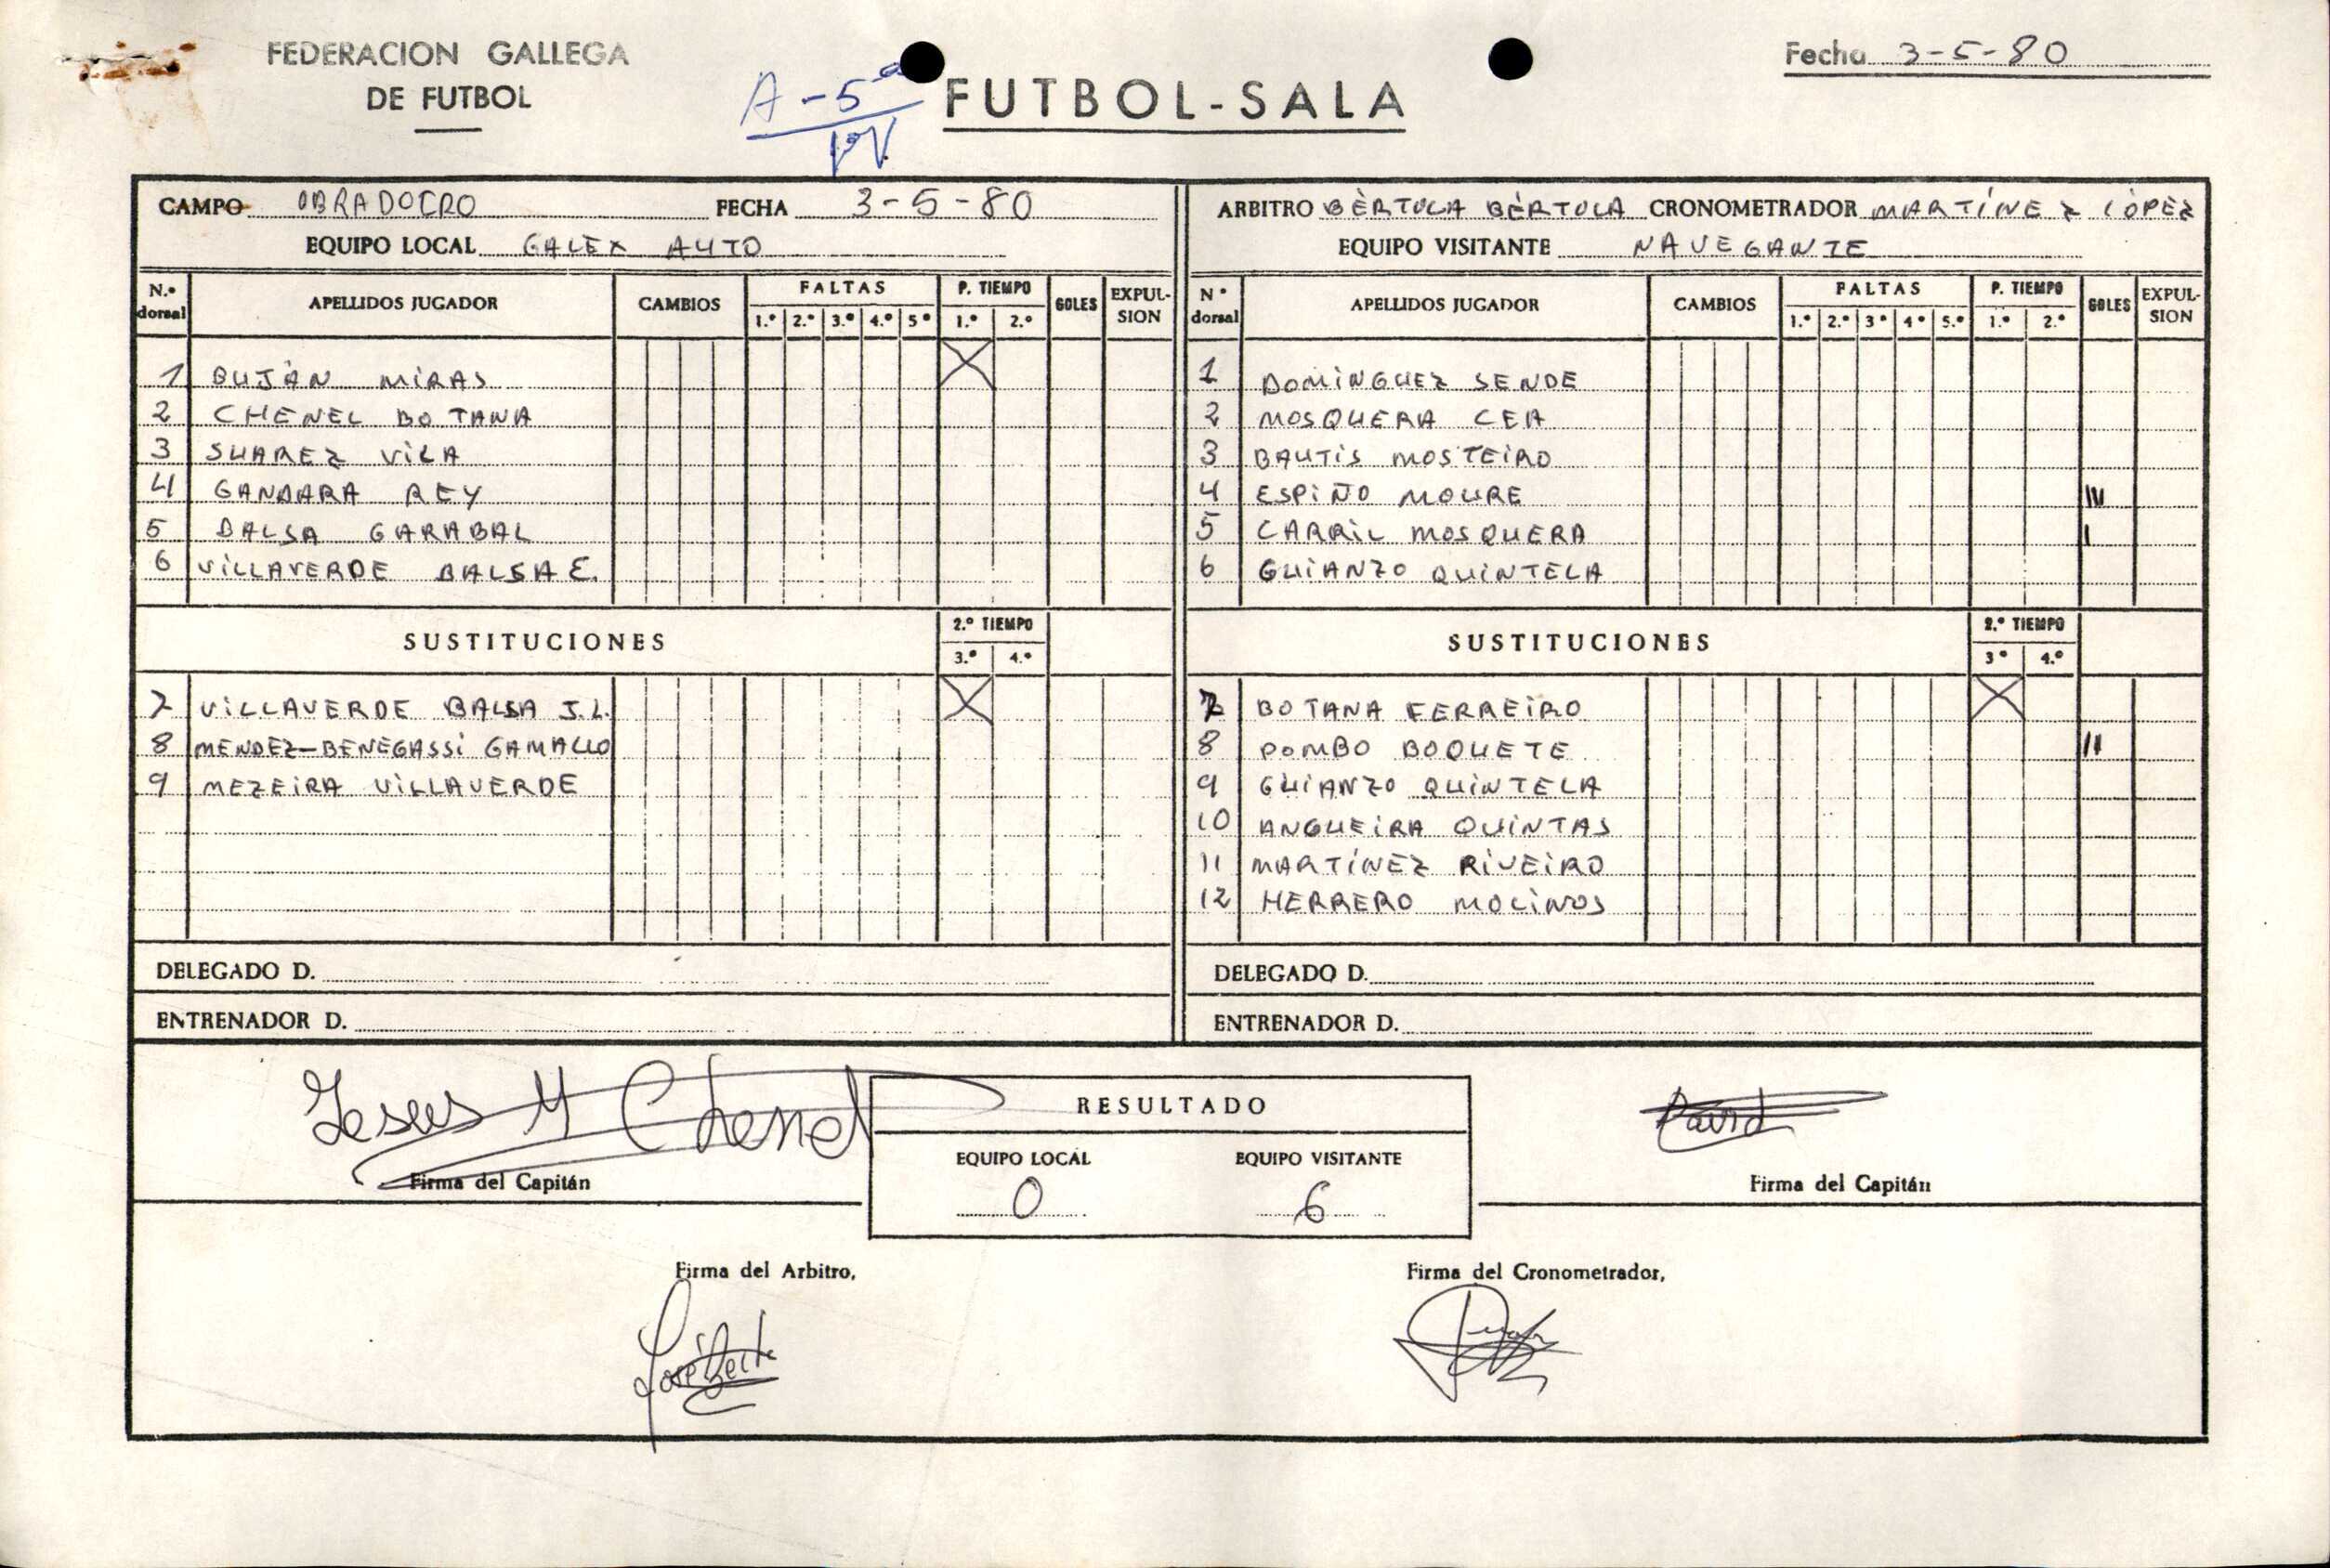 FEDERACION GALLEGA
DE FUTBOL
A-5ª
FUTBOL-SALA
Fecha 3-5-80
CAMPO OBRADOIRO FECHA 3-5-80
EQUIPO LOCAL GALEX AUTO
ARBITRO BÉRTOLA BÉRTOLA CRONOMETRADOR MARTÍNEZ LÓPEZ
EQUIPO VISITANTE NAVEGANTE
N.º dorsal APELLIDOS JUGADOR CAMBIOS FALTAS 1.º 2.º 3.º 4.º 5º P. TIEMPO 1.º 2.º GOLES EXPUL-SION
1 BUJÁN MIRAS X
2 CHENEL BOTANA
3 SUAREZ VILA
4 GANDARA REY
5 BALSA GARABAL
6 VILLAVERDE BALSA E.
SUSTITUCIONES 2.º TIEMPO 3.º 4.º
7 VILLAVERDE BALSA J.L. X
8 MENDEZ-BENEGASSI GAMALLO
9 MEZEIRA VILLAVERDE
DELEGADO D.
ENTRENADOR D.
Nº dorsal APELLIDOS JUGADOR CAMBIOS FALTAS 1.º 2.º 3º 4º 5.º P. TIEMPO 1.º 2.º GOLES EXPUL-SION
1 DOMINGUEZ SENDE
2 MOSQUERA CEA
3 BAUTIS MOSTEIRO
4 ESPIÑO MOURE III
5 CARRIL MOSQUERA I
6 GUIANZO QUINTELA
SUSTITUCIONES 2.º TIEMPO 3º 4.º
7 BOTANA FERREIRO X
8 POMBO BOQUETE II
9 GUIANZO QUINTELA
10 ANGUEIRA QUINTAS
11 MARTÍNEZ RIVEIRO
12 HERRERO MOLINOS
DELEGADO D.
ENTRENADOR D.
Jesus M Chenel
Firma del Capitán
RESULTADO
EQUIPO LOCAL EQUIPO VISITANTE
0 6
David
Firma del Capitán
Firma del Arbitro,
Firma del Cronometrador,